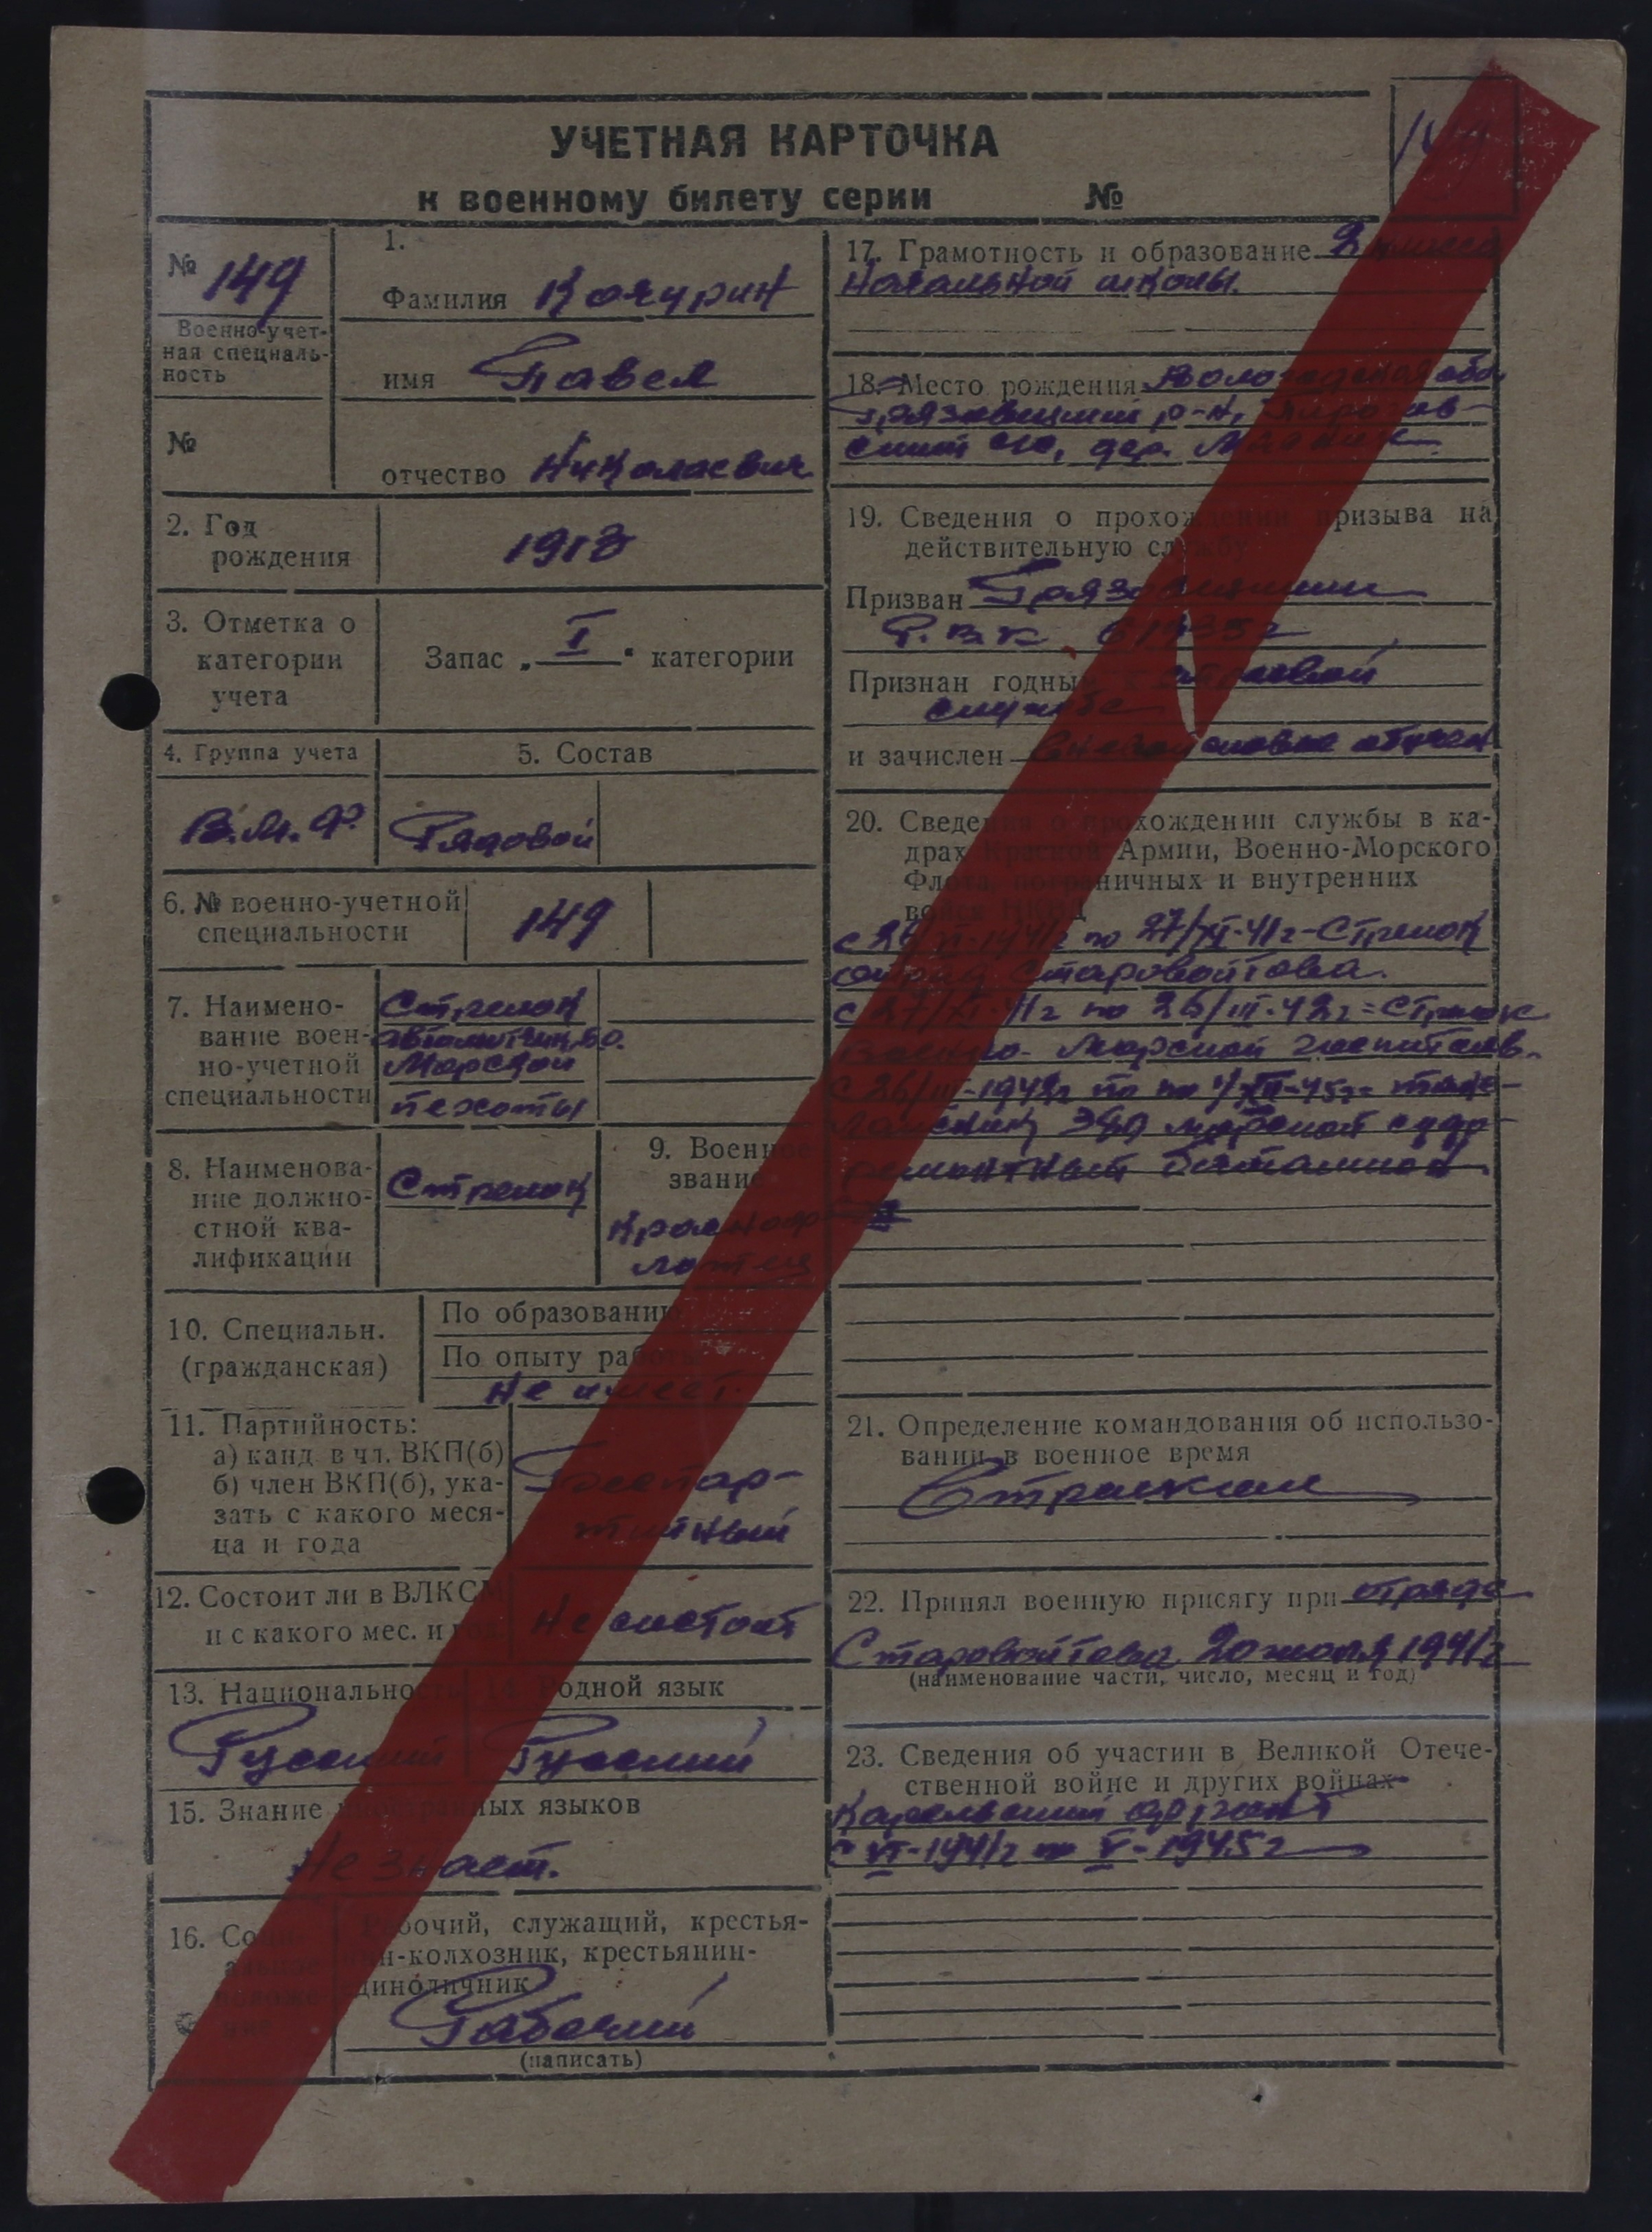 УЧЕТНАЯ КАРТОЧКА
к военному билету серии №
149
№ 149
Военно-учет-
ная специаль-
ность
№
1.
Фамилия Кочурин
имя Павел
отчество Николаевич
2. Год
рождения
1918
3. Отметка о
категории
учета
Запас „ I " категории
4. Группа учета
5. Состав
В.М.Ф.
Рядовой
6. № военно-учетной
специальности
149
7. Наимено-
вание воен-
но-учетной
специальности
Стрелок
Морской
пехоты
8. Наименова-
ние должно-
стной ква-
лификации
Стрелок
9. Военное
звание
10. Специальн.
(гражданская)
По образованию
По опыту работы
Не имеет.
11. Партийность:
а) канд. в чл. ВКП(б)
б) член ВКП(б), ука-
зать с какого меся-
ца и года
Беспар-
тийный
12. Состоит ли в ВЛКСМ
и с какого мес. и год.
Не состоит
13. Национальность
14. Родной язык
Русский
Русский
15. Знание иностранных языков
Не знает.
16. Соци-
альное
положе
ние
Рабочий, служащий, крестья-
нин-колхозник, крестьянин-
единоличник
Рабочий
(написать)
17. Грамотность и образование 2 класса
Начальной школы.
18. Место рождения Вологодская обл.
Грязовецкий р-н,
с/с, дер.
19. Сведения о прохождении призыва на
действительную службу
Призван Грязовецким
Р.В.К. в 1935г
Признан годным к строевой
службе
и зачислен обучен
20. Сведения о прохождении службы в ка-
драх Красной Армии, Военно-Морского
Флота, пограничных и внутренних
войск НКВД
VI-1941г по 27/XI-41г-Стрелок
отряд Старовойтова.
с 27/XI-41г по 26/III-42г=Стрелок
Военно-Морской госпиталь.
с 26/III-1942г по
морской судо-
ремонтный батальон
21. Определение командования об использо-
вании в военное время
Стрелком
22. Принял военную присягу при отряде
Старовойтова 20 июля 1941г
(наименование части, число, месяц и год)
23. Сведения об участии в Великой Отече-
ственной войне и других войнах
Карельский фронт
с VI-1941г по V-1945г